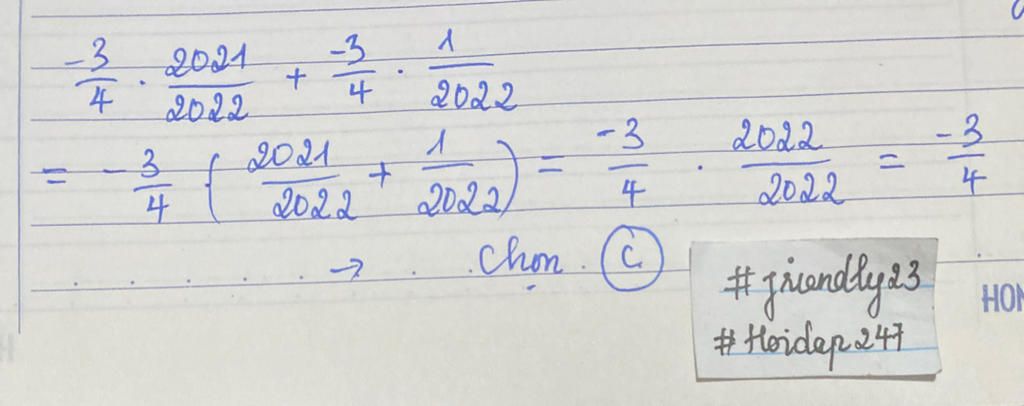 -3/4 . 2021/2022 + -3/4 . 1/2022
= -3/4 ( 2021/2022 + 1/2022 ) = -3/4 . 2022/2022 = -3/4
→ Chọn C
#friendly23
#Hoidap247
HON